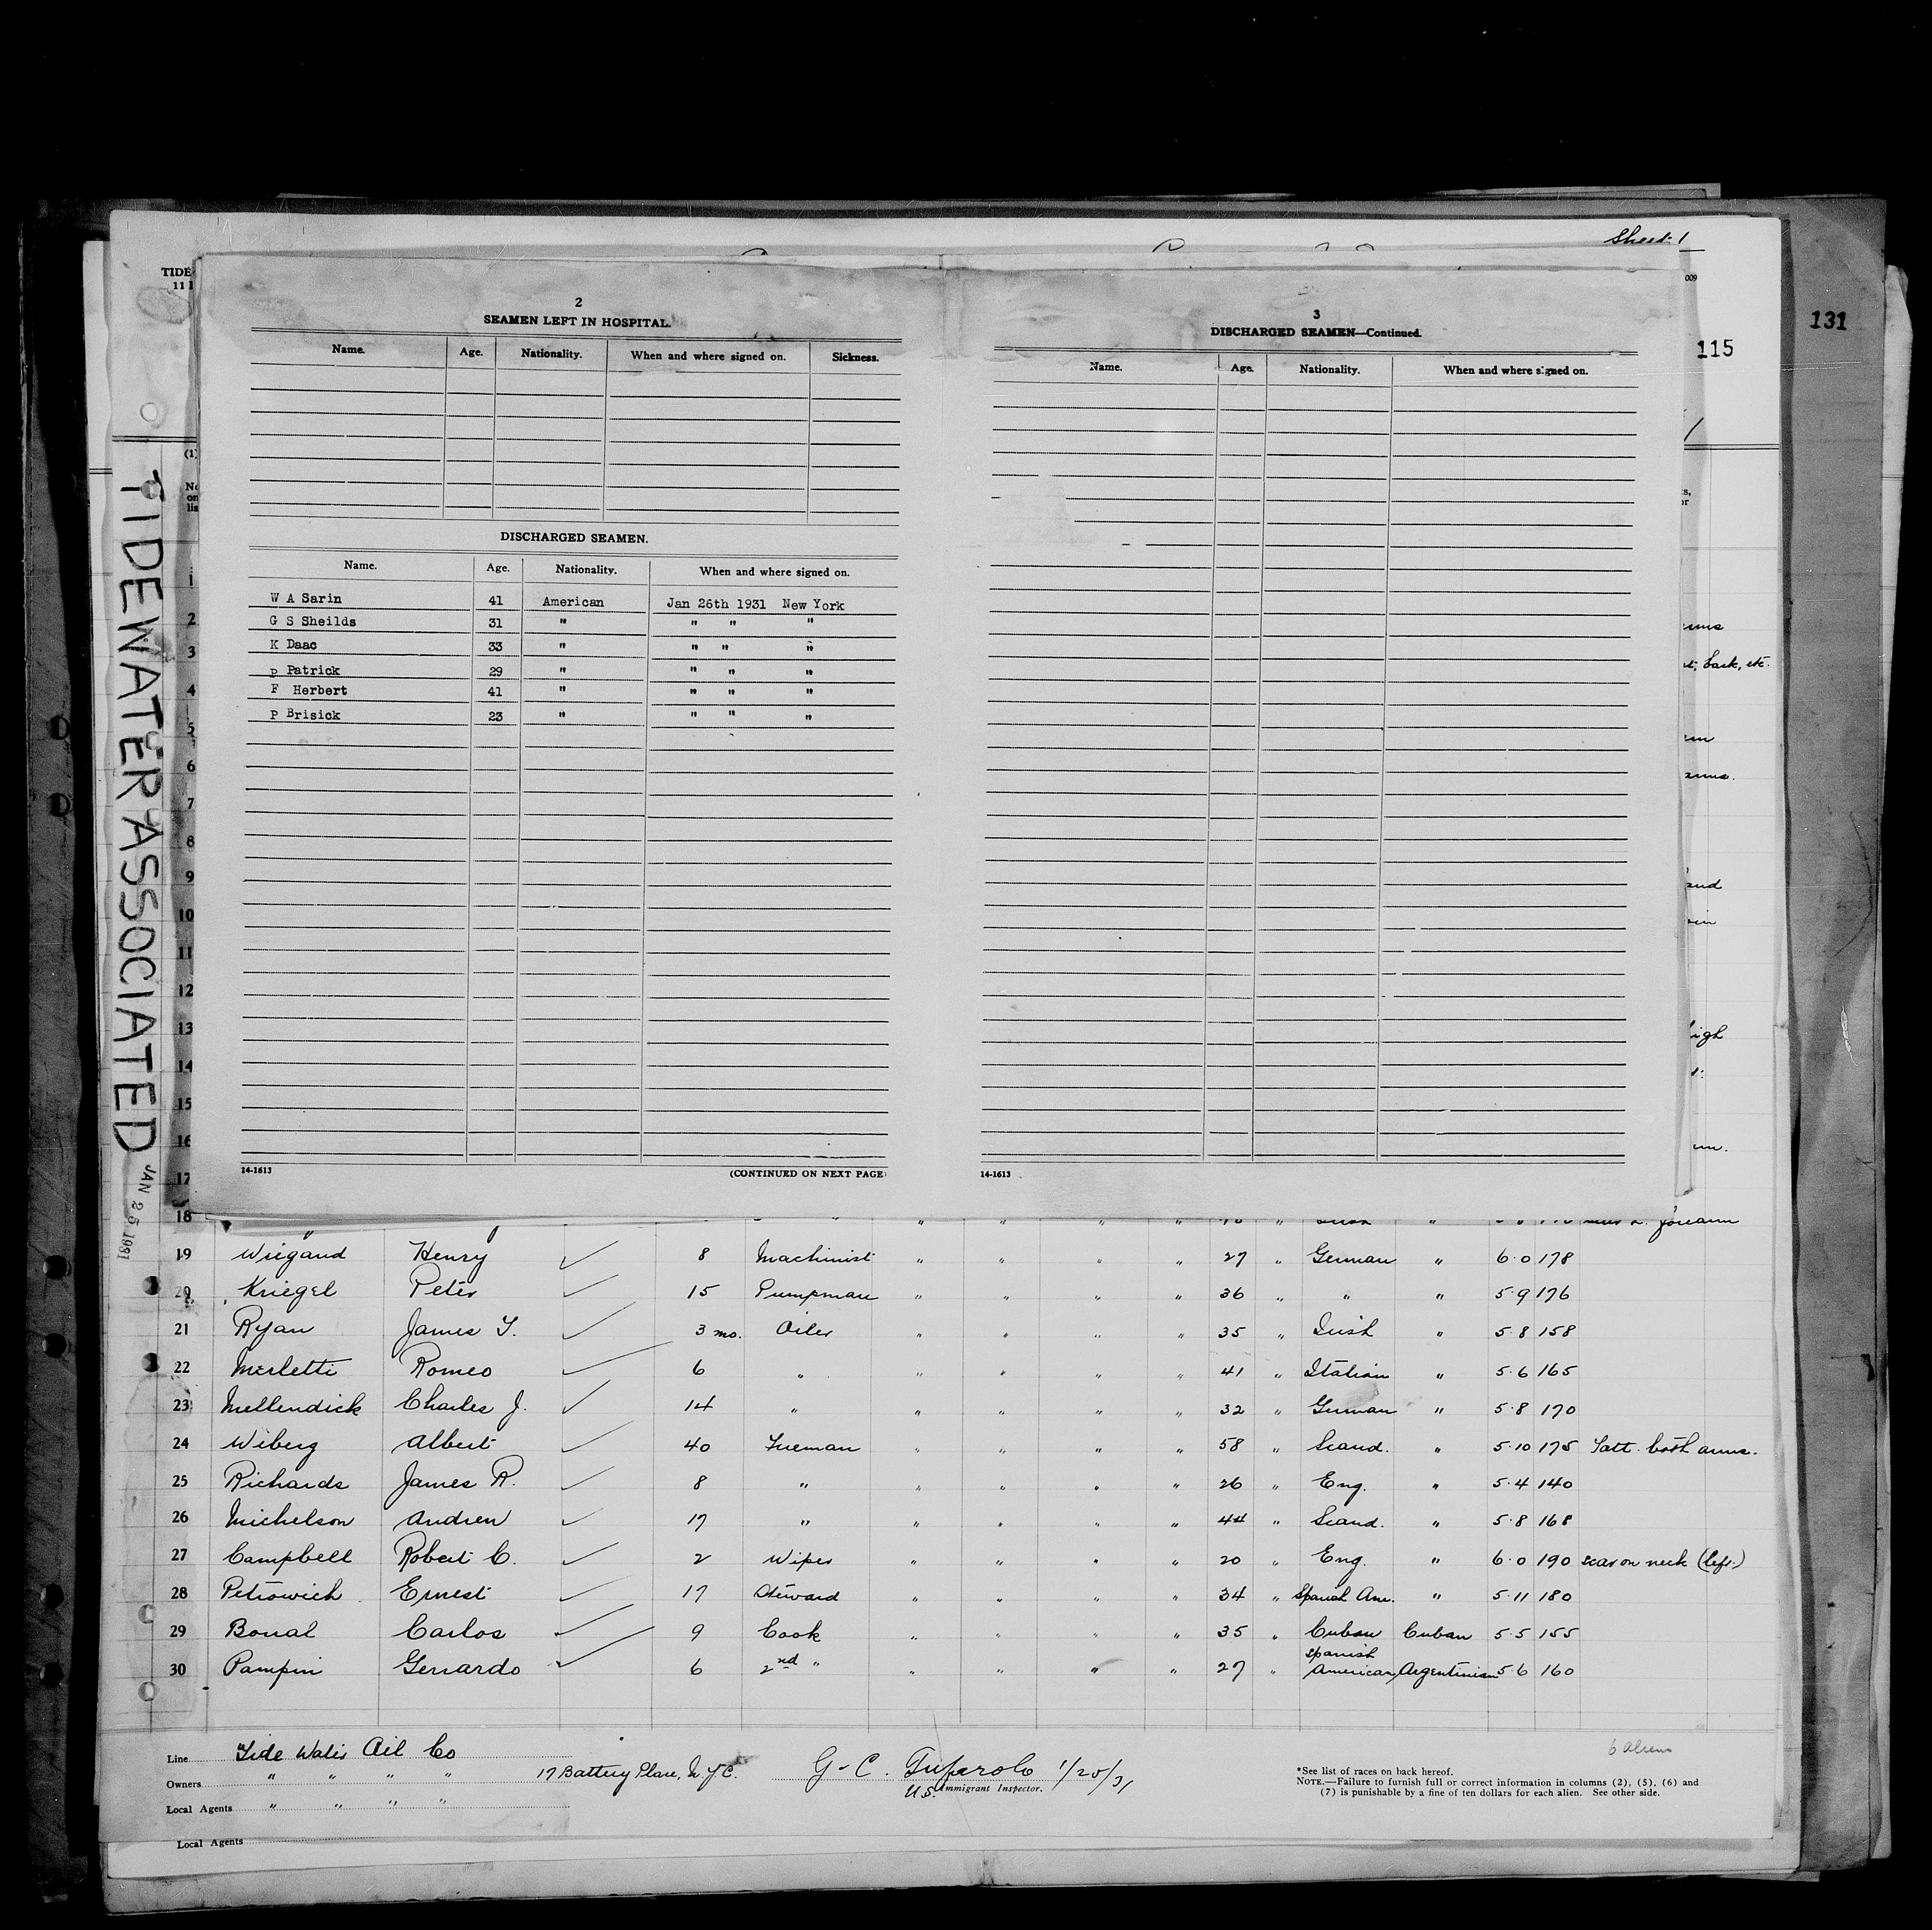 Sheet 1
TIDE
11
009
131
115
2
SEAMEN LEFT IN HOSPITAL.
Name. Age. Nationality. When and where signed on. Sickness.
DISCHARGED SEAMEN.
Name. Age. Nationality. When and where signed on.
W A Sarin 41 American Jan 26th 1931 New York
G S Sheilds 31 " " " "
K Daac 33 " " " "
P Patrick 29 " " " "
F Herbert 41 " " " "
P Brisick 23 " " " "
14-1613 (CONTINUED ON NEXT PAGE)
3
DISCHARGED SEAMEN—Continued.
Name. Age. Nationality. When and where signed on.
14-1613
TIDEWATER ASSOCIATED
JAN 25 1931
(1)
1
2
3
4
5
6
7
8
9
10
11
12
13
14
15
16
17
18
back, etc.
19 Wiegand Henry 8 Machinist " " " " 27 " German " 6·0 178
20 Kriegel Peter 15 Pumpman " " " " 36 " " " 5·9 176
21 Ryan James 3 mo. Oiler " " " " 35 " Irish " 5·8 158
22 Merletti Romeo 6 " " " " " 41 " Italian " 5·6 165
23 Mellendick Charles J. 14 " " " " " 32 " German " 5·8 170
24 Wiberg Albert 40 Fireman " " " " 58 " Scand. " 5·10 175 Tatt. both arms.
25 Richards James R. 8 " " " " " 26 " Eng. " 5·4 140
26 Michelson Andrew 17 " " " " " 44 " Scand. " 5·8 168
27 Campbell Robert C. 2 Wiper " " " " 20 " Eng. " 6·0 190 scar on neck (left)
28 Petrowich Ernest 17 Steward " " " " 34 " Spanish Am. " 5·11 180
29 Bonal Carlos 9 Cook " " " " 35 " Cuban Cuban 5·5 155
30 Pampin Gerardo 6 2nd " " " " " 27 " Spanish American Argentinian 5·6 160
6 Aliens
Line Tide Water Oil Co
Owners " " " " 17 Battery Place, N.Y.C.
Local Agents " " " "
Local Agents
G. C. 1/25/31
U.S. Immigrant Inspector.
*See list of races on back hereof.
NOTE.—Failure to furnish full or correct information in columns (2), (5), (6) and
(7) is punishable by a fine of ten dollars for each alien. See other side.